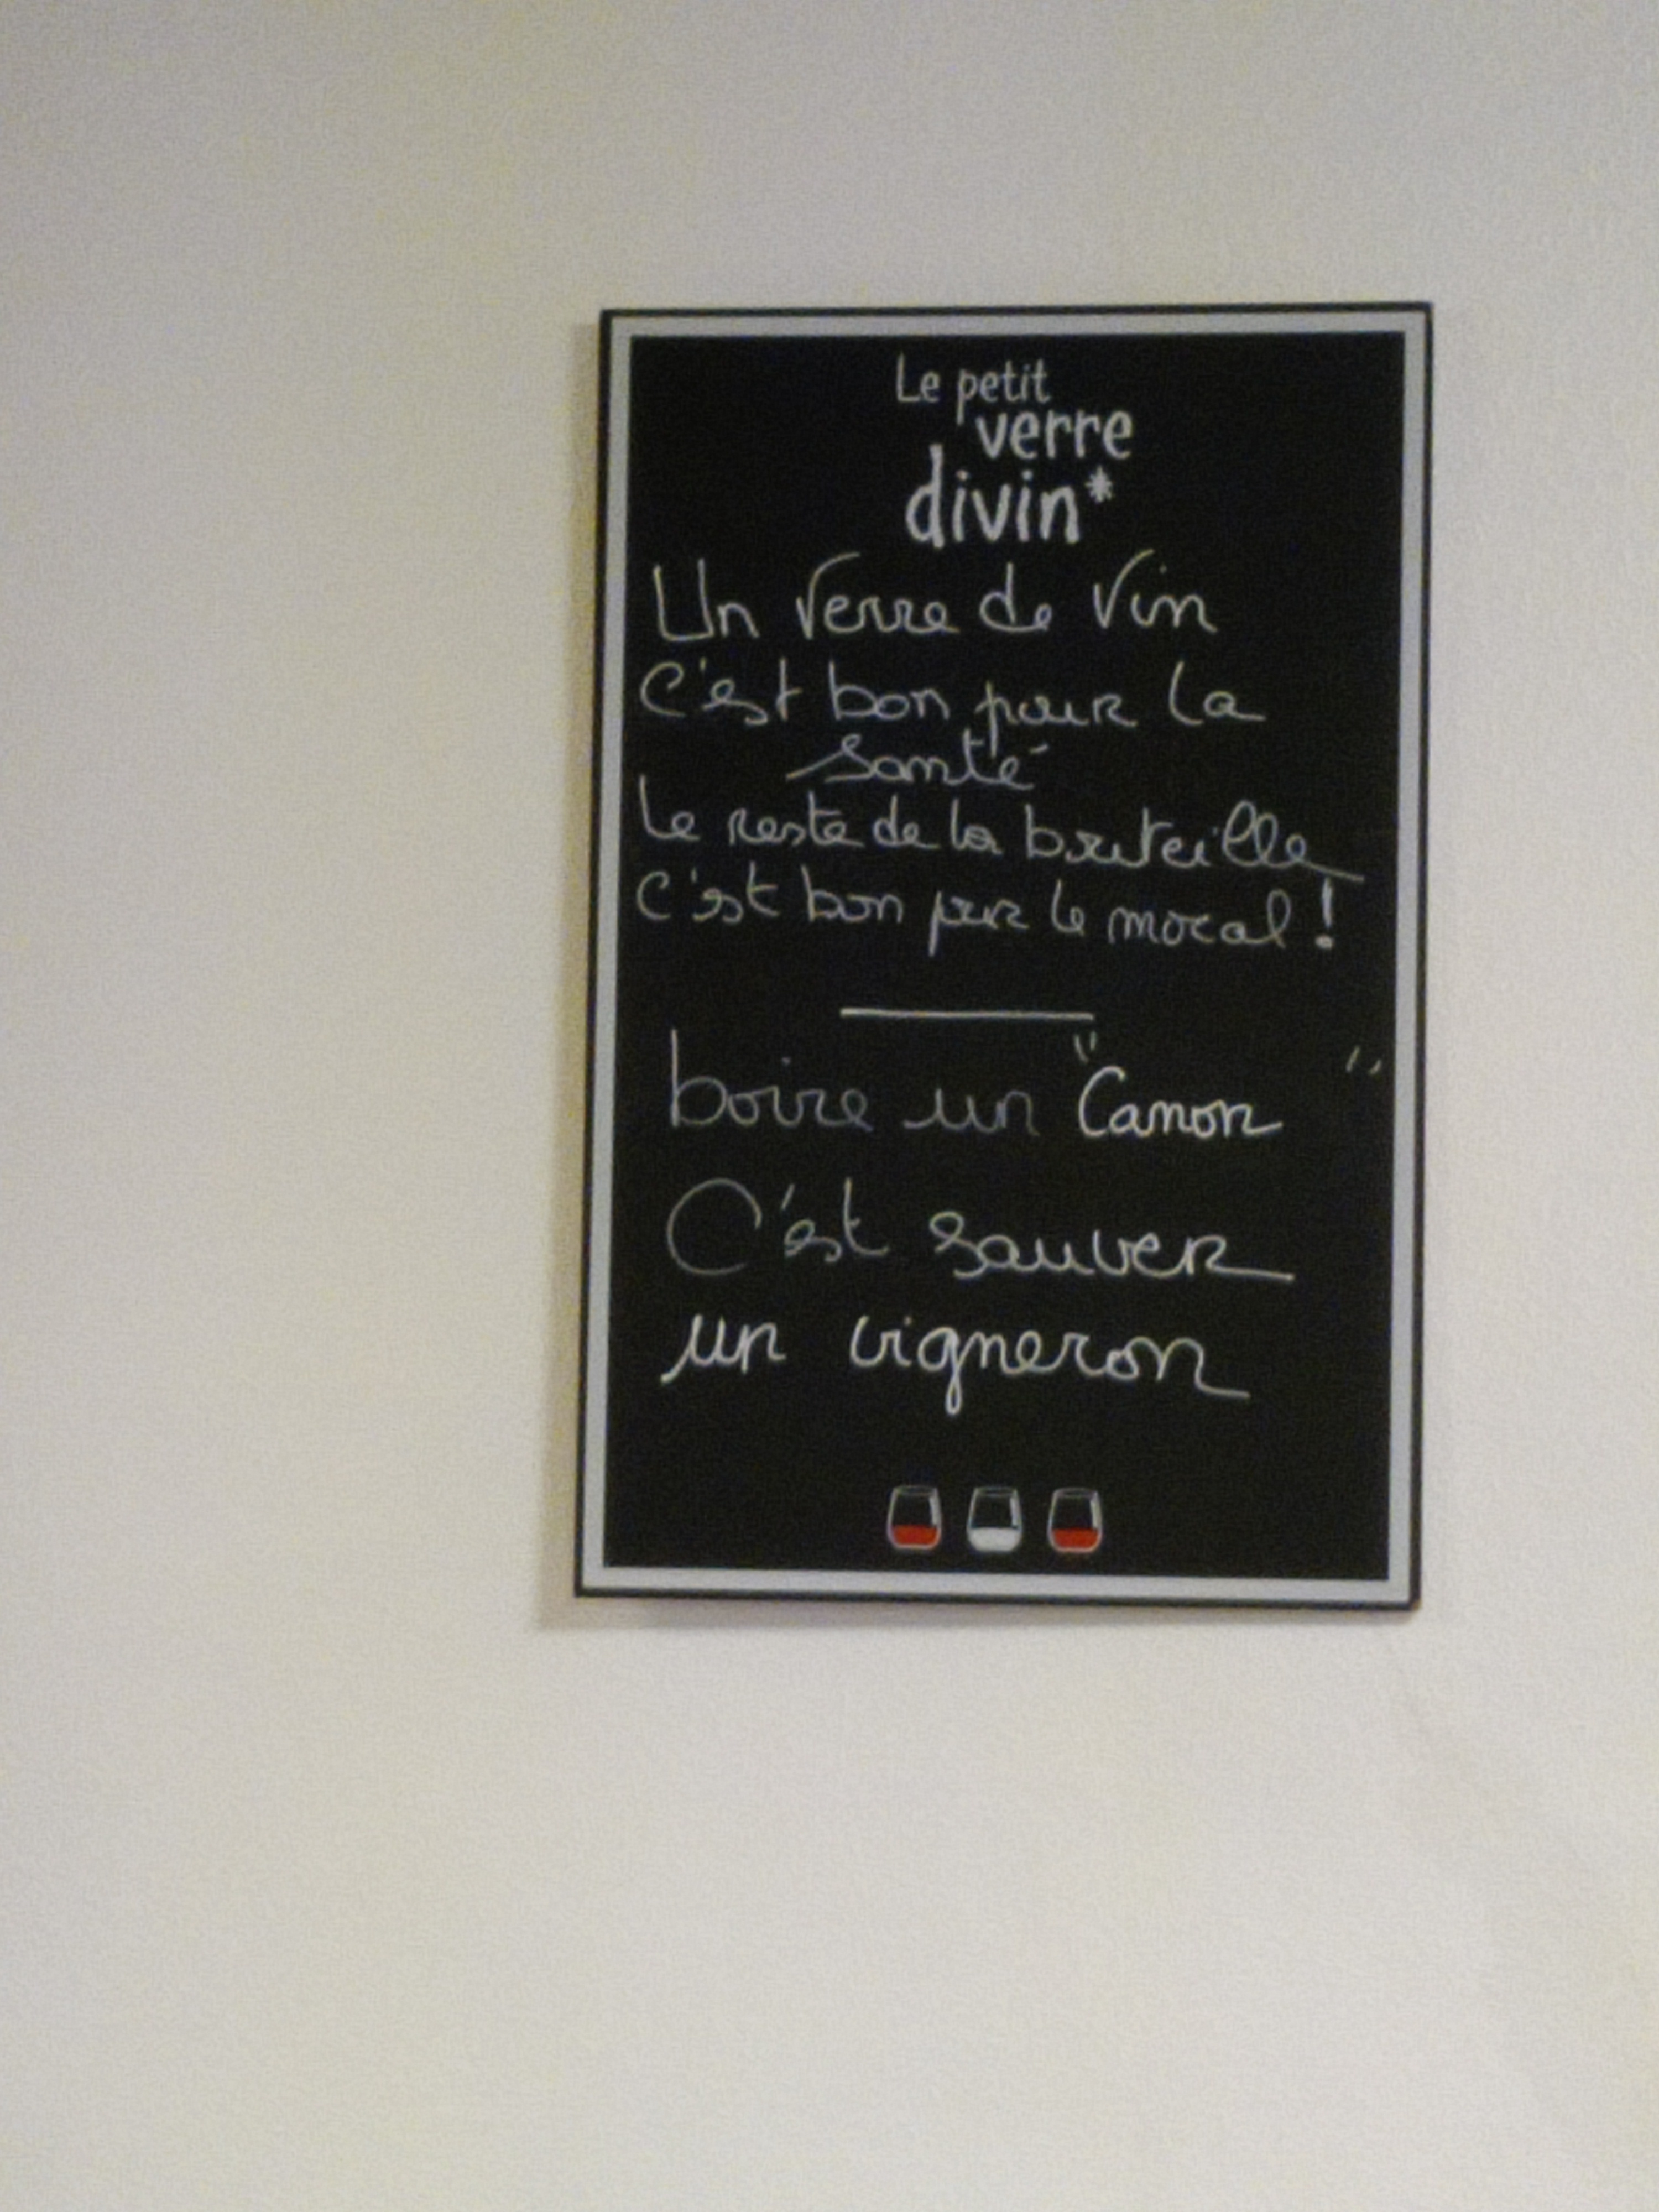 Le petit
verre
divin*
Un Verre de Vin
C'est bon pour la
santé
Le reste de la bouteille
C'est bon pour le moral !
boire un "Canon"
C'est sauver
un vigneron